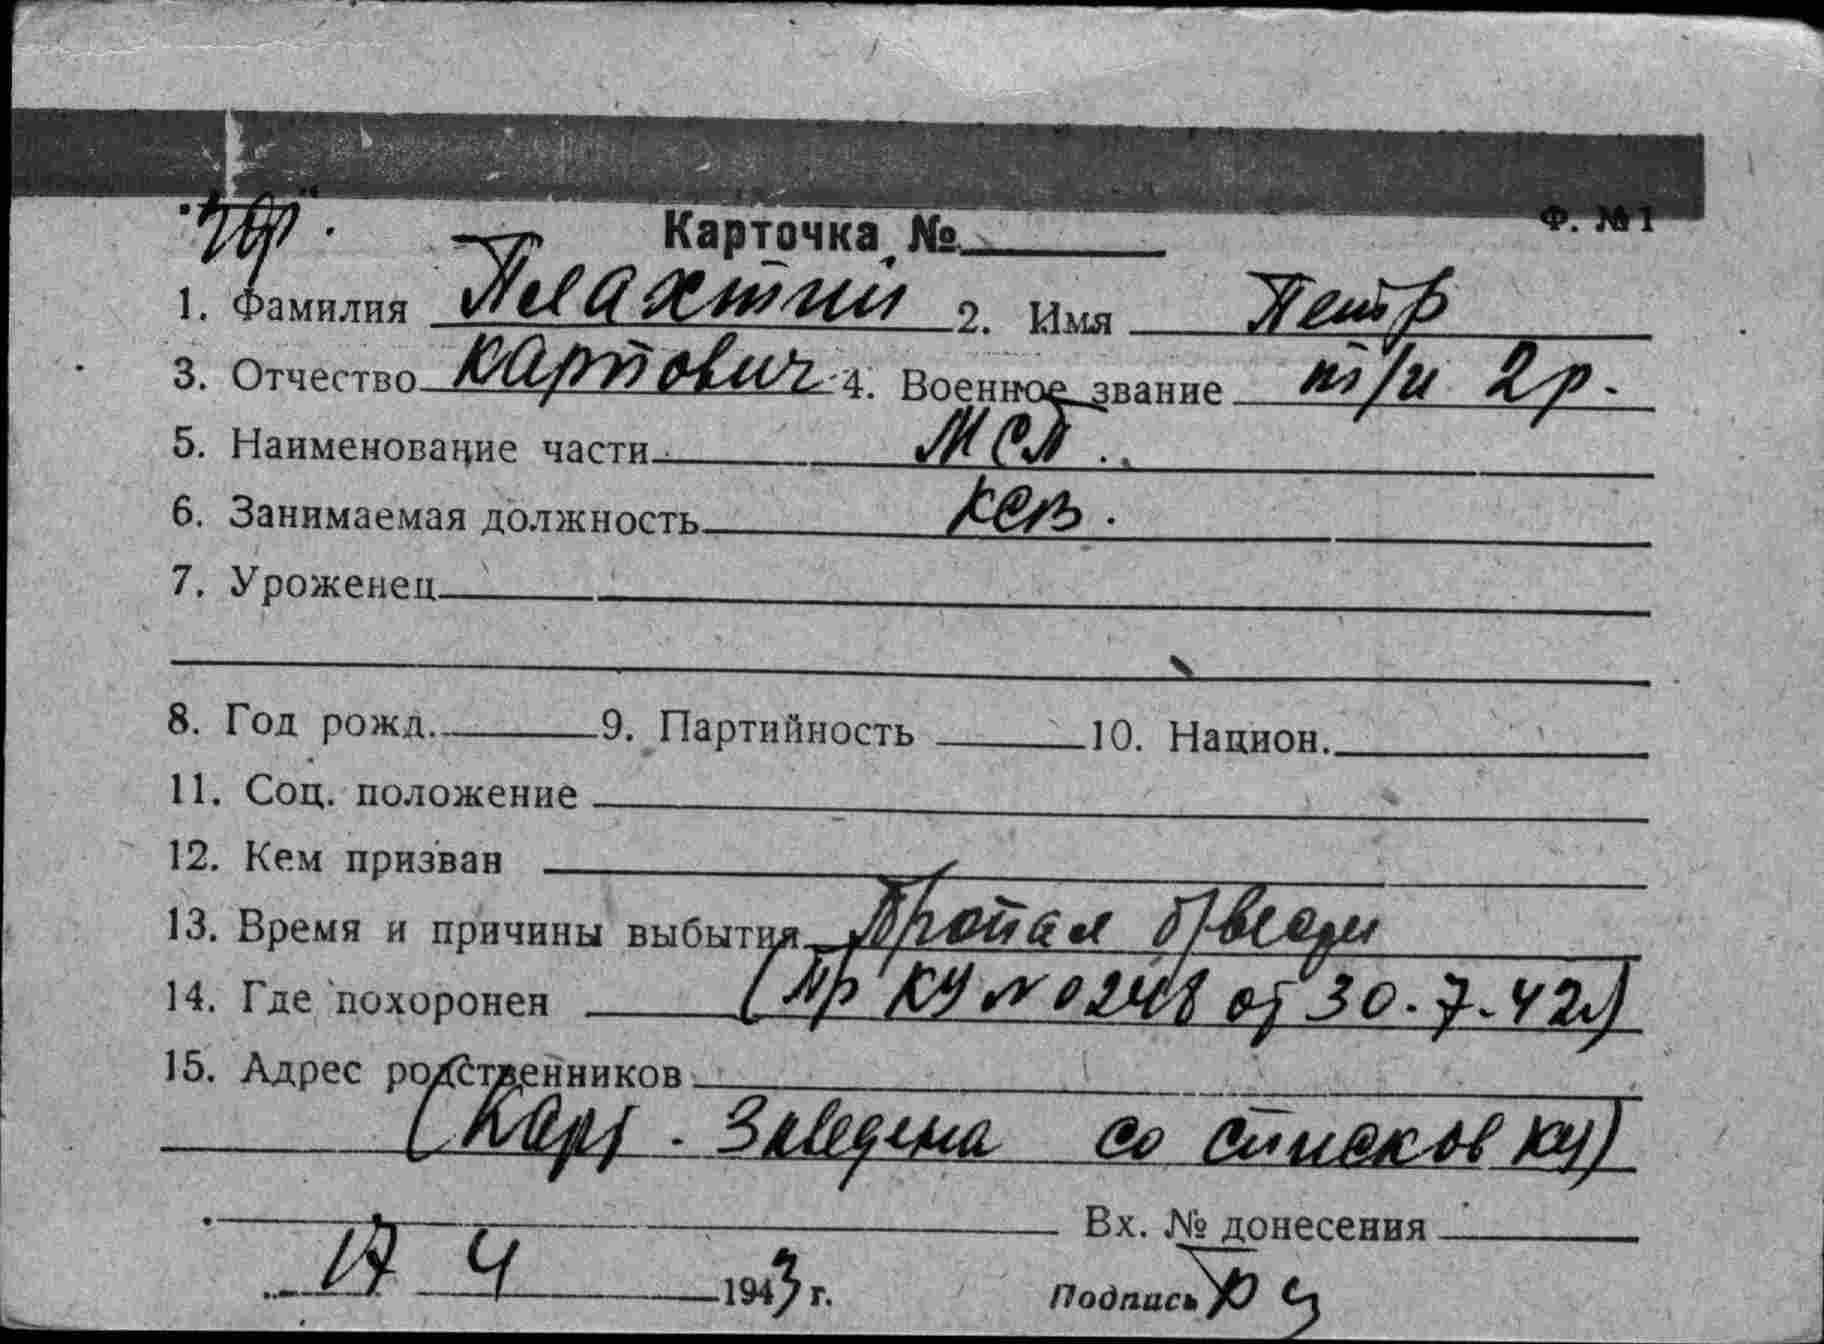 Ф. №1
Карточка №
1. Фамилия Плахтий 2. Имя Петр
3. Отчество Карпович 4. Военное звание т/и 2 р.
5. Наименование части МСП
6. Занимаемая должность
7. Уроженец
8. Год рожд. 9. Партийность 10. Национ.
11. Соц. положение
12. Кем призван
13. Время и причины выбытия Пропал б/вести
14. Где похоронен (Пр КУ № 0248 от 30.7.42г)
15. Адрес родственников
(Карт. Заведена со списков КУ)
Вх. № донесения
17 4 1943 г. Подпись